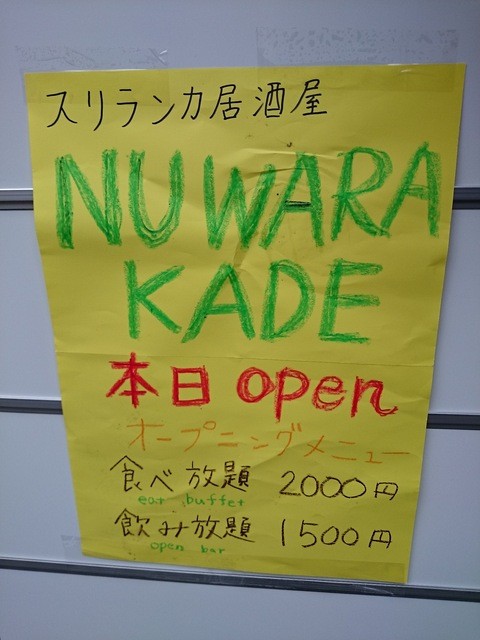 スリランカ居酒屋
NUWARA
KADE
本日 open
オープニングメニュー
食べ放題 2000円
eat buffet
飲み放題 1500円
open bar